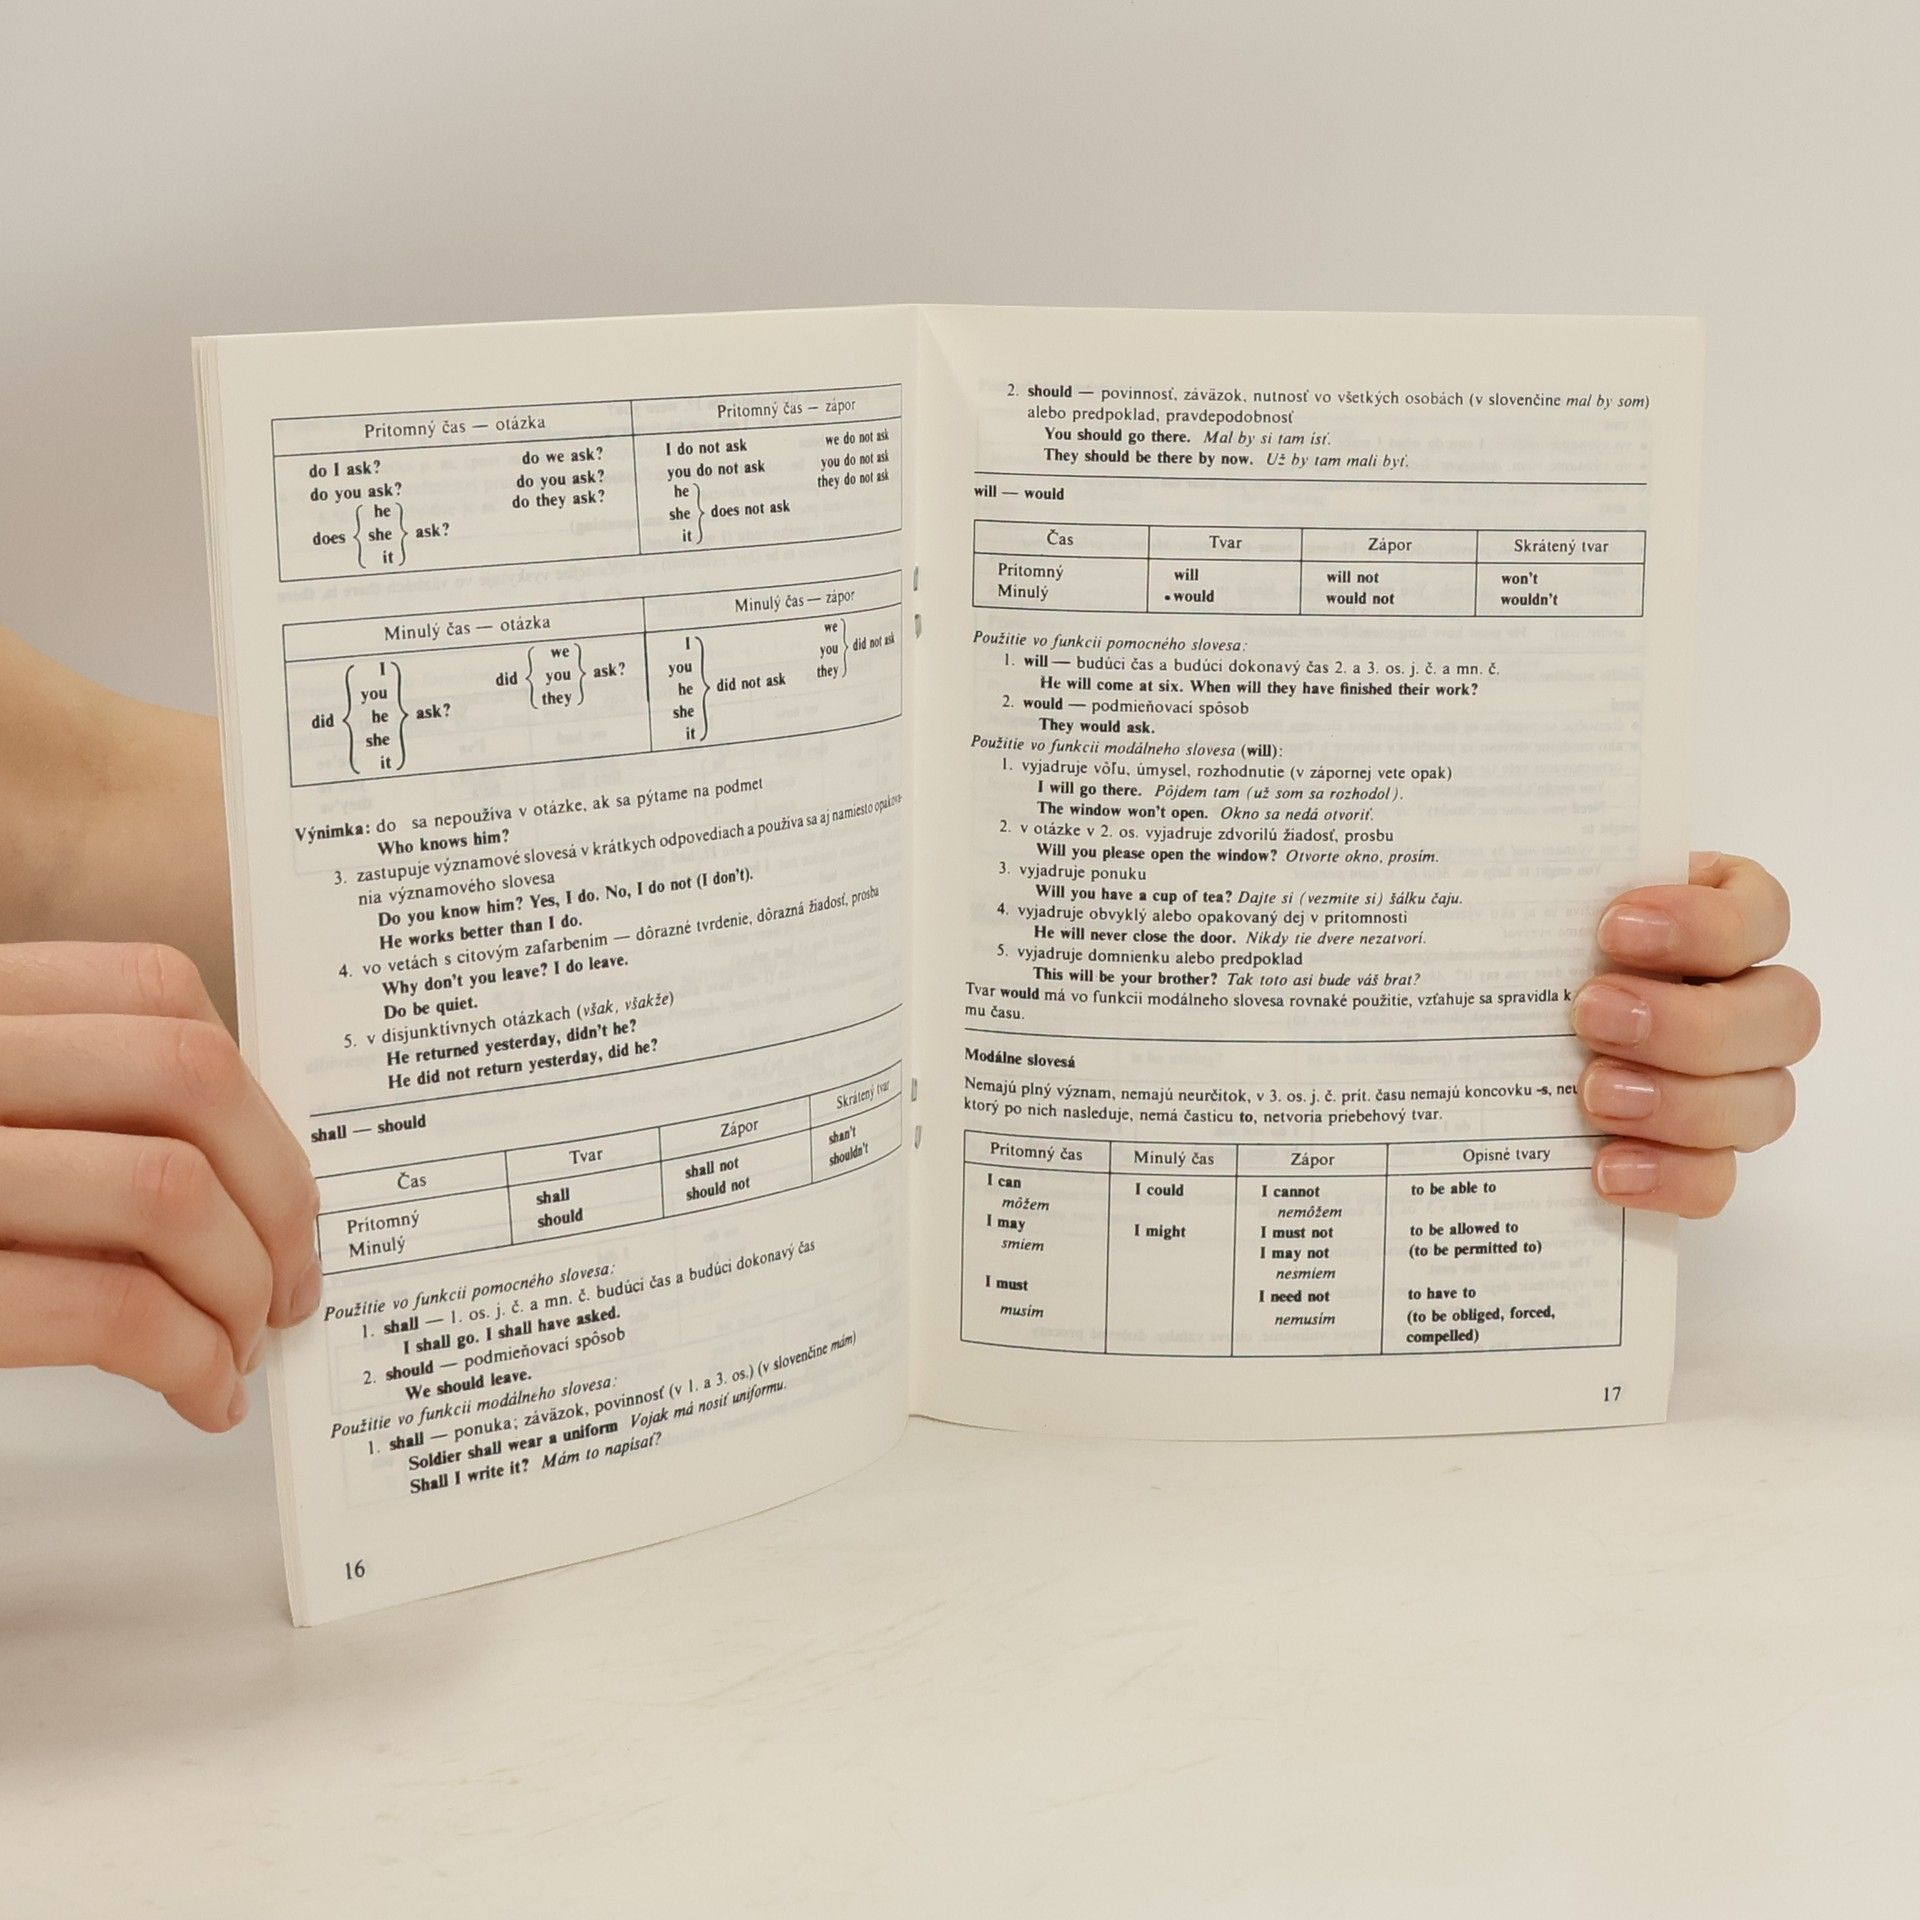 Prítomný čas — otázka Prítomný čas — zápor
do I ask? do we ask? I do not ask we do not ask
do you ask? do you ask? you do not ask you do not ask
does he she it ask? do they ask? he she it does not ask they do not ask
Minulý čas — otázka Minulý čas — zápor
did I you he she it ask? did we you they ask? I you he she it did not ask we you they did not ask
Výnimka: do sa nepoužíva v otázke, ak sa pýtame na podmet
Who knows him?
3. zastupuje významové slovesá v krátkych odpovediach a používa sa aj namiesto opakova-
nia významového slovesa
Do you know him? Yes, I do. No, I do not (I don't).
He works better than I do.
4. vo vetách s citovým zafarbením — dôrazné tvrdenie, dôrazná žiadosť, prosba
Why don't you leave? I do leave.
Do be quiet.
5. v disjunktívnych otázkach (však, všakže)
He returned yesterday, didn't he?
He did not return yesterday, did he?
shall — should
Čas Tvar Zápor Skrátený tvar
Prítomný shall shall not shan't
Minulý should should not shouldn't
Použitie vo funkcii pomocného slovesa:
1. shall — 1. os. j. č. a mn. č. budúci čas a budúci dokonavý čas
I shall go. I shall have asked.
2. should — podmieňovací spôsob
We should leave.
Použitie vo funkcii modálneho slovesa:
1. shall — ponuka; záväzok, povinnosť (v 1. a 3. os.) (v slovenčine mám)
Soldier shall wear a uniform Vojak má nosiť uniformu.
Shall I write it? Mám to napísať?
16
2. should — povinnosť, záväzok, nutnosť vo všetkých osobách (v slovenčine mal by som)
alebo predpoklad, pravdepodobnosť
You should go there. Mal by si tam ísť.
They should be there by now. Už by tam mali byť.
will — would
Čas Tvar Zápor Skrátený tvar
Prítomný will will not won't
Minulý would would not wouldn't
Použitie vo funkcii pomocného slovesa:
1. will — budúci čas a budúci dokonavý čas 2. a 3. os. j. č. a mn. č.
He will come at six. When will they have finished their work?
2. would — podmieňovací spôsob
They would ask.
Použitie vo funkcii modálneho slovesa (will):
1. vyjadruje vôľu, úmysel, rozhodnutie (v zápornej vete opak)
I will go there. Pôjdem tam (už som sa rozhodol).
The window won't open. Okno sa nedá otvoriť.
2. v otázke v 2. os. vyjadruje zdvorilú žiadosť, prosbu
Will you please open the window? Otvorte okno, prosím.
3. vyjadruje ponuku
Will you have a cup of tea? Dajte si (vezmite si) šálku čaju.
4. vyjadruje obvyklý alebo opakovaný dej v prítomnosti
He will never close the door. Nikdy tie dvere nezatvorí.
5. vyjadruje domnienku alebo predpoklad
This will be your brother? Tak toto asi bude váš brat?
Tvar would má vo funkcii modálneho slovesa rovnaké použitie, vzťahuje sa spravidla k
mu času.
Modálne slovesá
Nemajú plný význam, nemajú neurčitok, v 3. os. j. č. prít. času nemajú koncovku -s,
ktorý po nich nasleduje, nemá časticu to, netvoria priebehový tvar.
Prítomný čas Minulý čas Zápor Opisné tvary
I can I could I cannot to be able to
môžem nemôžem
I may I might I must not to be allowed to
smiem I may not (to be permitted to)
nesmiem
I must I need not to have to
musím nemusím (to be obliged, forced,
compelled)
17